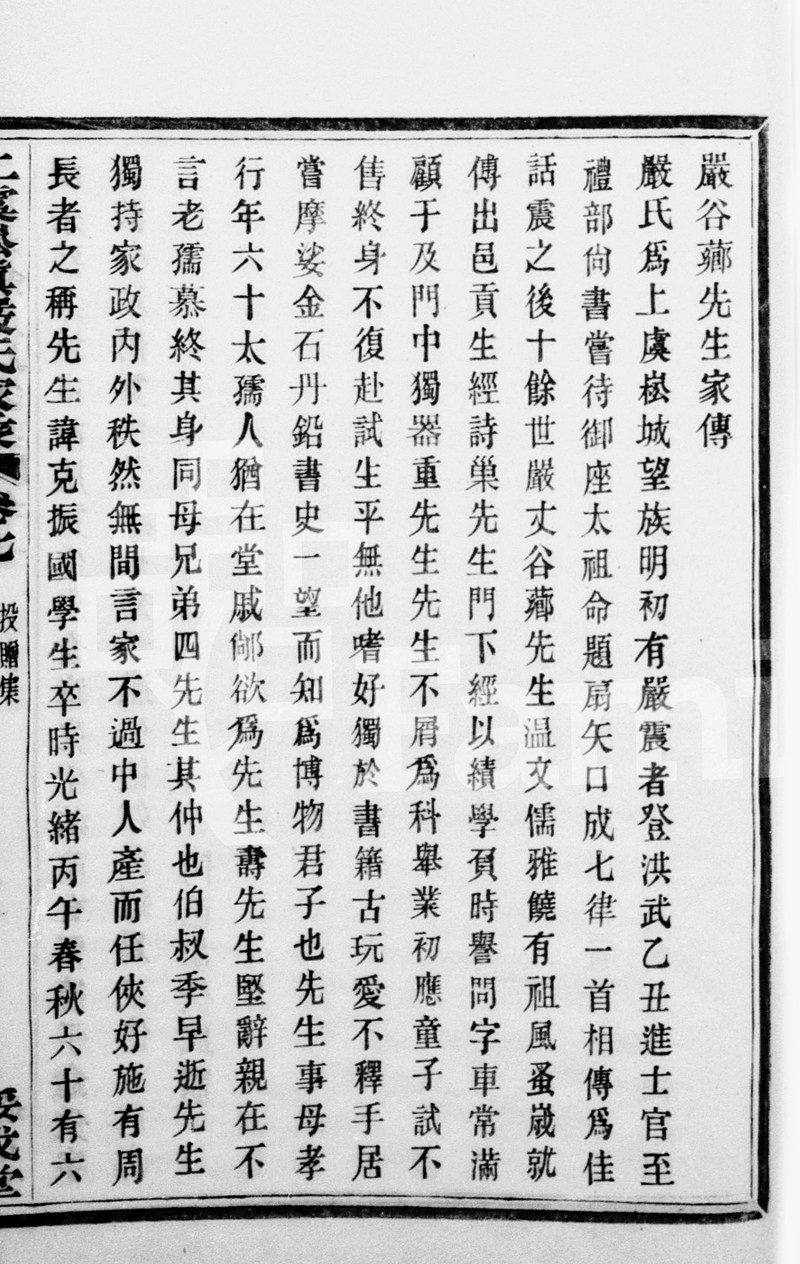 嚴谷薌先生家傳
嚴氏爲上虞崧城望族明初有嚴震者登洪武乙丑進士官至
禮部尙書嘗待御座太祖命題扇矢口成七律一首相傳爲佳
話震之後十餘世嚴丈谷薌先生温文儒雅饒有祖風蚤歲就
傅出邑貢生經詩巢先生門下經以績學負時譽問字車常滿
顧于及門中獨器重先生先生不屑爲科舉業初應童子試不
售終身不復赴試生平無他嗜好獨於書籍古玩愛不釋手居
嘗摩娑金石丹鉛書史一望而知爲博物君子也先生事母孝
行年六十太孺人猶在堂戚鄰欲爲先生壽先生堅辭親在不
言老孺慕終其身同母兄弟四先生其仲也伯叔季早逝先生
獨持家政內外秩然無間言家不過中人產而任俠好施有周
長者之稱先生諱克振國學生卒時光緖丙午春秋六十有六
嚴氏家乘 卷七 投贈集